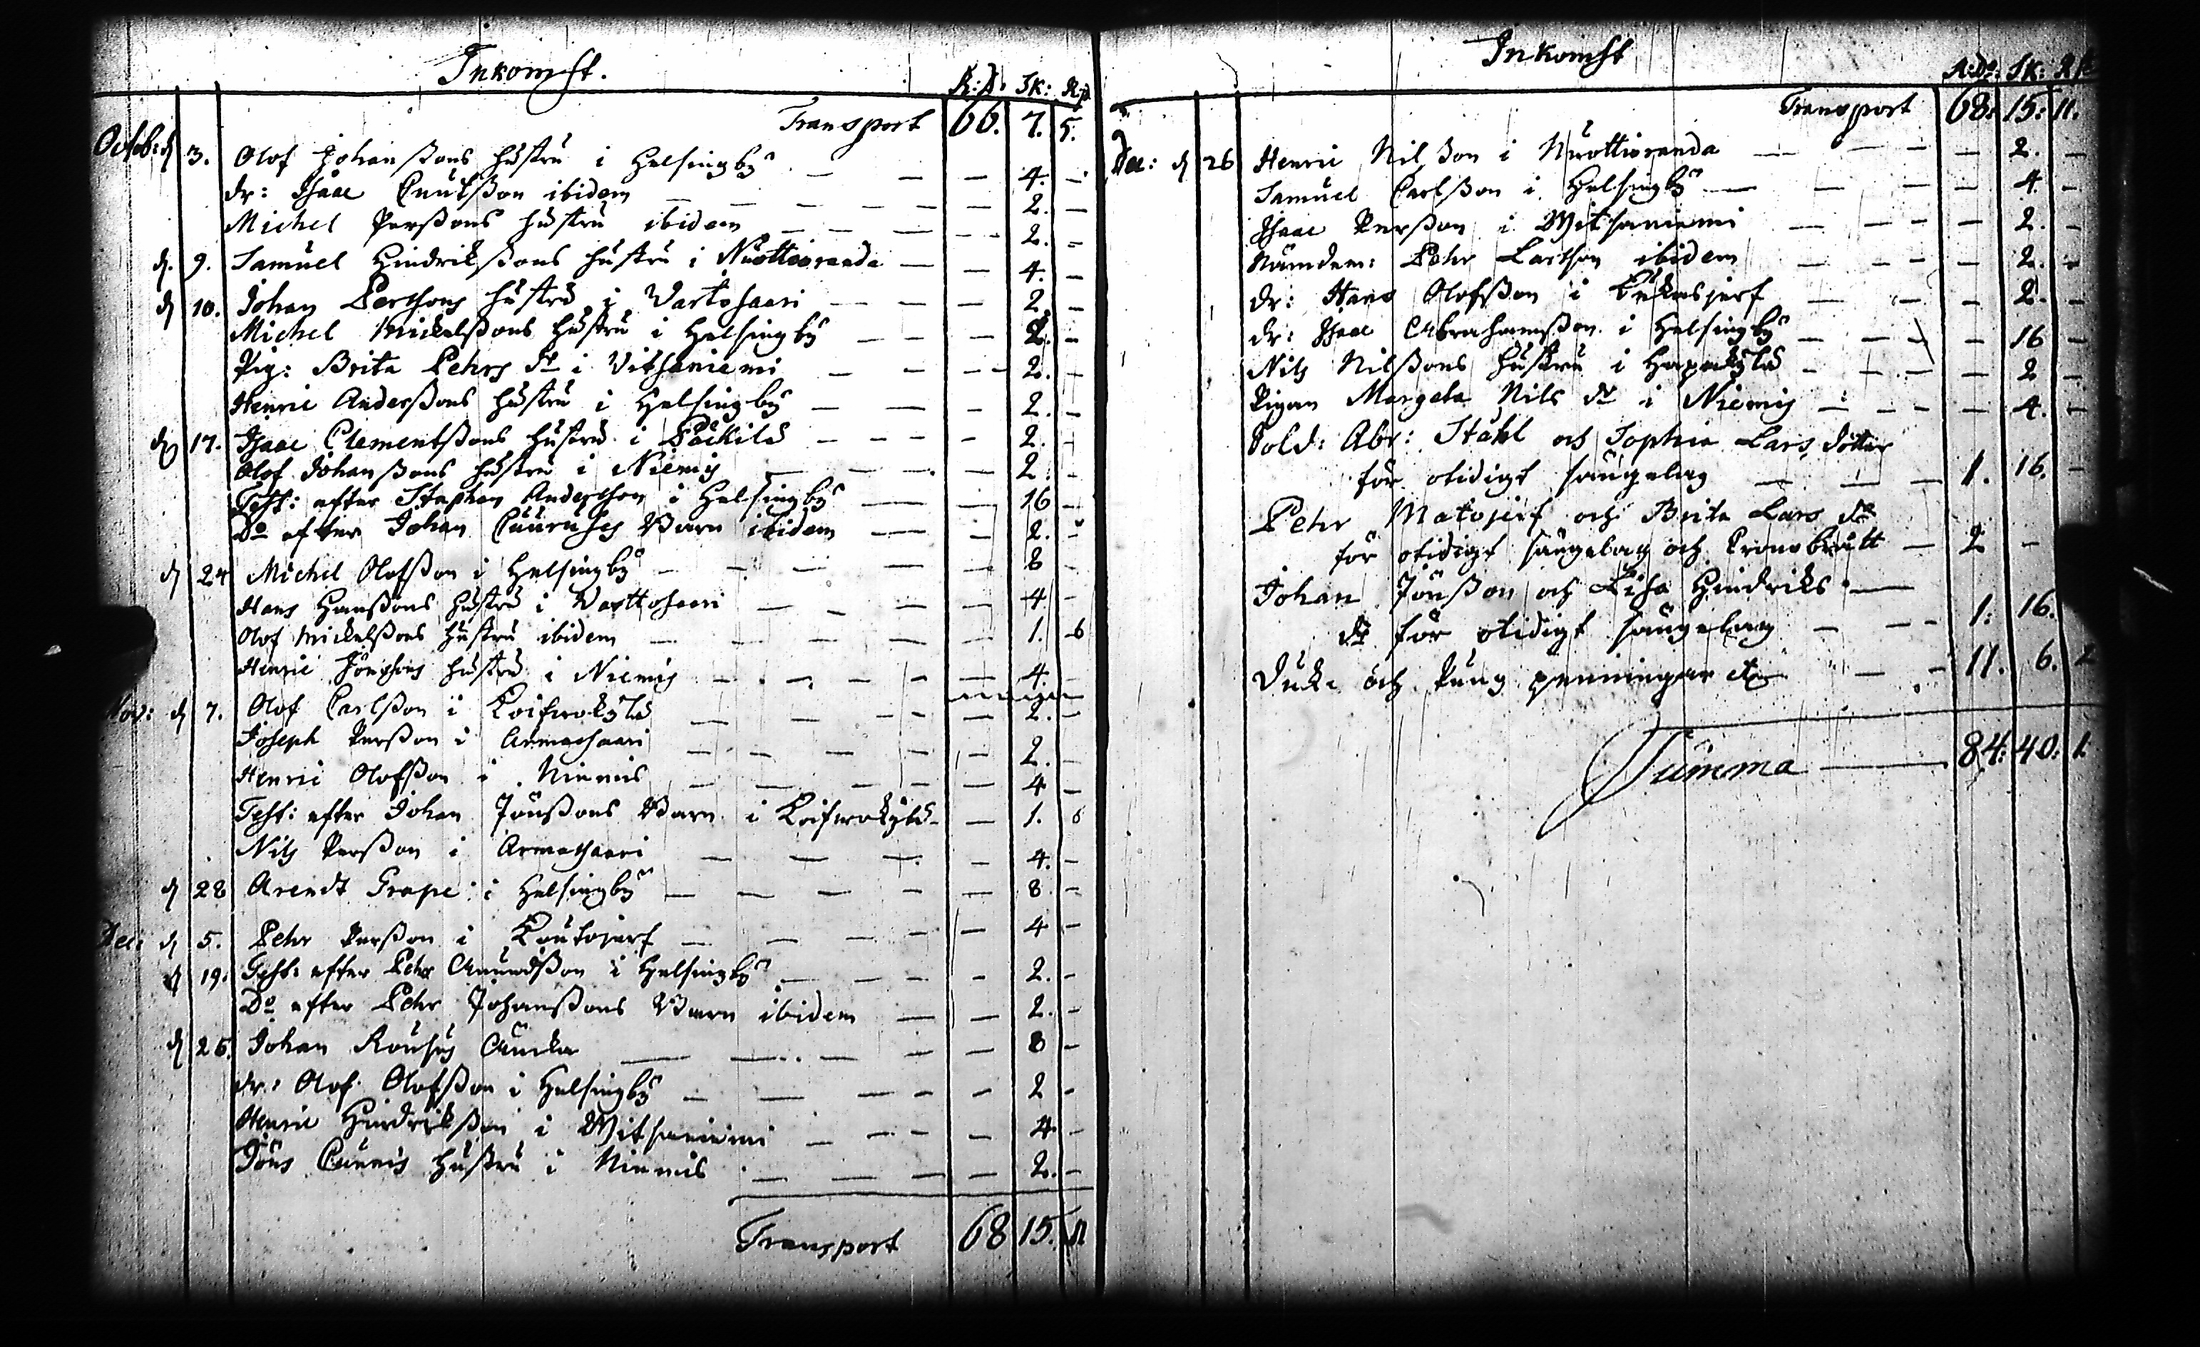 Inkomst.
R:d: sk: Rst
Transport 66. 7. 5.
Octob: d 3. Olof Johanßons hustru i Helsingby — — — 4. -
dr: Isaac Cnutßon ibidem — — — 2. —
Michel Perßons hustru ibidem — — — 2. -
d. 9. Samuel Hindrikßons hustru i Nuottioranda — — 4. -
d 10. Johan Perssons hustru i Vartosaari — — — 2. -
Michel Mickelßons hustru i Helsingby — — — 2. -
Pig: Brita Pehrs dr i Vitsaniemi — — — 2. -
Henric Anderßons hustru i Helsingby — — — 2. -
d 17. Isaac Clementßons hustru i Päckilä — — — 2. -
Olof Johanßons hustru i Niemis — — — 2. -
Test: efter Stephan Andersson i Helsingby — — 16 -
Do efter Johan Barn ibidem — — 2. -
d 24 Michel Olofßon i Helsingby — — — 8 -
Hans Hanßons hustru i Varttosaari — — — 4 -
Olof Mickelßons hustru ibidem — — — 1. 6
Henric Jönssons hustru i Niemis — — — 4. -
Nov: d 7. Olof Carlßon i Koifwokylä — — — 2. -
Joseph Perßon i Armassaari — — — 2. -
Henric Olofßon i Niemis — — — 4 -
Test: efter Johan Jönßons Barn i Koifwokylä — — 1. 6
Nils Perßon i Armassaari — — — 4. -
d 28 Arendt Grape i Helsingby — — — 8 -
Dec: d 5. Pehr Perßon i Koutojerf — — — 4 -
d 19. Test: efter Pehr Amundßon i Helsingby — — 2. -
Do efter Pehr Johanßons Barn ibidem — — 2. -
d 26. Johan Rousus — — — 8 -
dr: Olof Olofßon i Helsingby — — — 2 -
Henric Hindrikßon i Witsaniemi — — — 4 -
Jöns hustru i Niemis — — — 2. -
Transport 68 15. 11
Inkomst
R:dr: sk: Rst
Transport 68. 15. 11.
Dec: d 26 Henric Nilßon i Nuottioranda — — — 2. -
Samuel Carlßon i Helsingby — — — 4. -
Isaac Perßon i Witsaniemi — — — 2. -
Nämdem: Pehr Larsson ibidem — — — 2. -
dr: Hans Olofßon i — — — 2. -
dr: Isaac Abrahamßon i Helsingby — — — 16 -
Nils Nilßons hustru i Haapakylä — — — 2 -
Pigan Margeta Nils dr i Niemis — — — 4. -
Sold: Abr: Stähl och Sophia Lars dotter
för otidigt sängelag — — — 1. 16. -
Pehr Matojerf och Brita Lars dr
för otidigt sängelag och Cronobrått — 2 -
Johan Jönßon och Lisa Hindriks —
dr för otidigt sängelag — — 1: 16.
Duk: och Pung penningar etc — — 11. 6. 2
Summa — 84: 40: 1